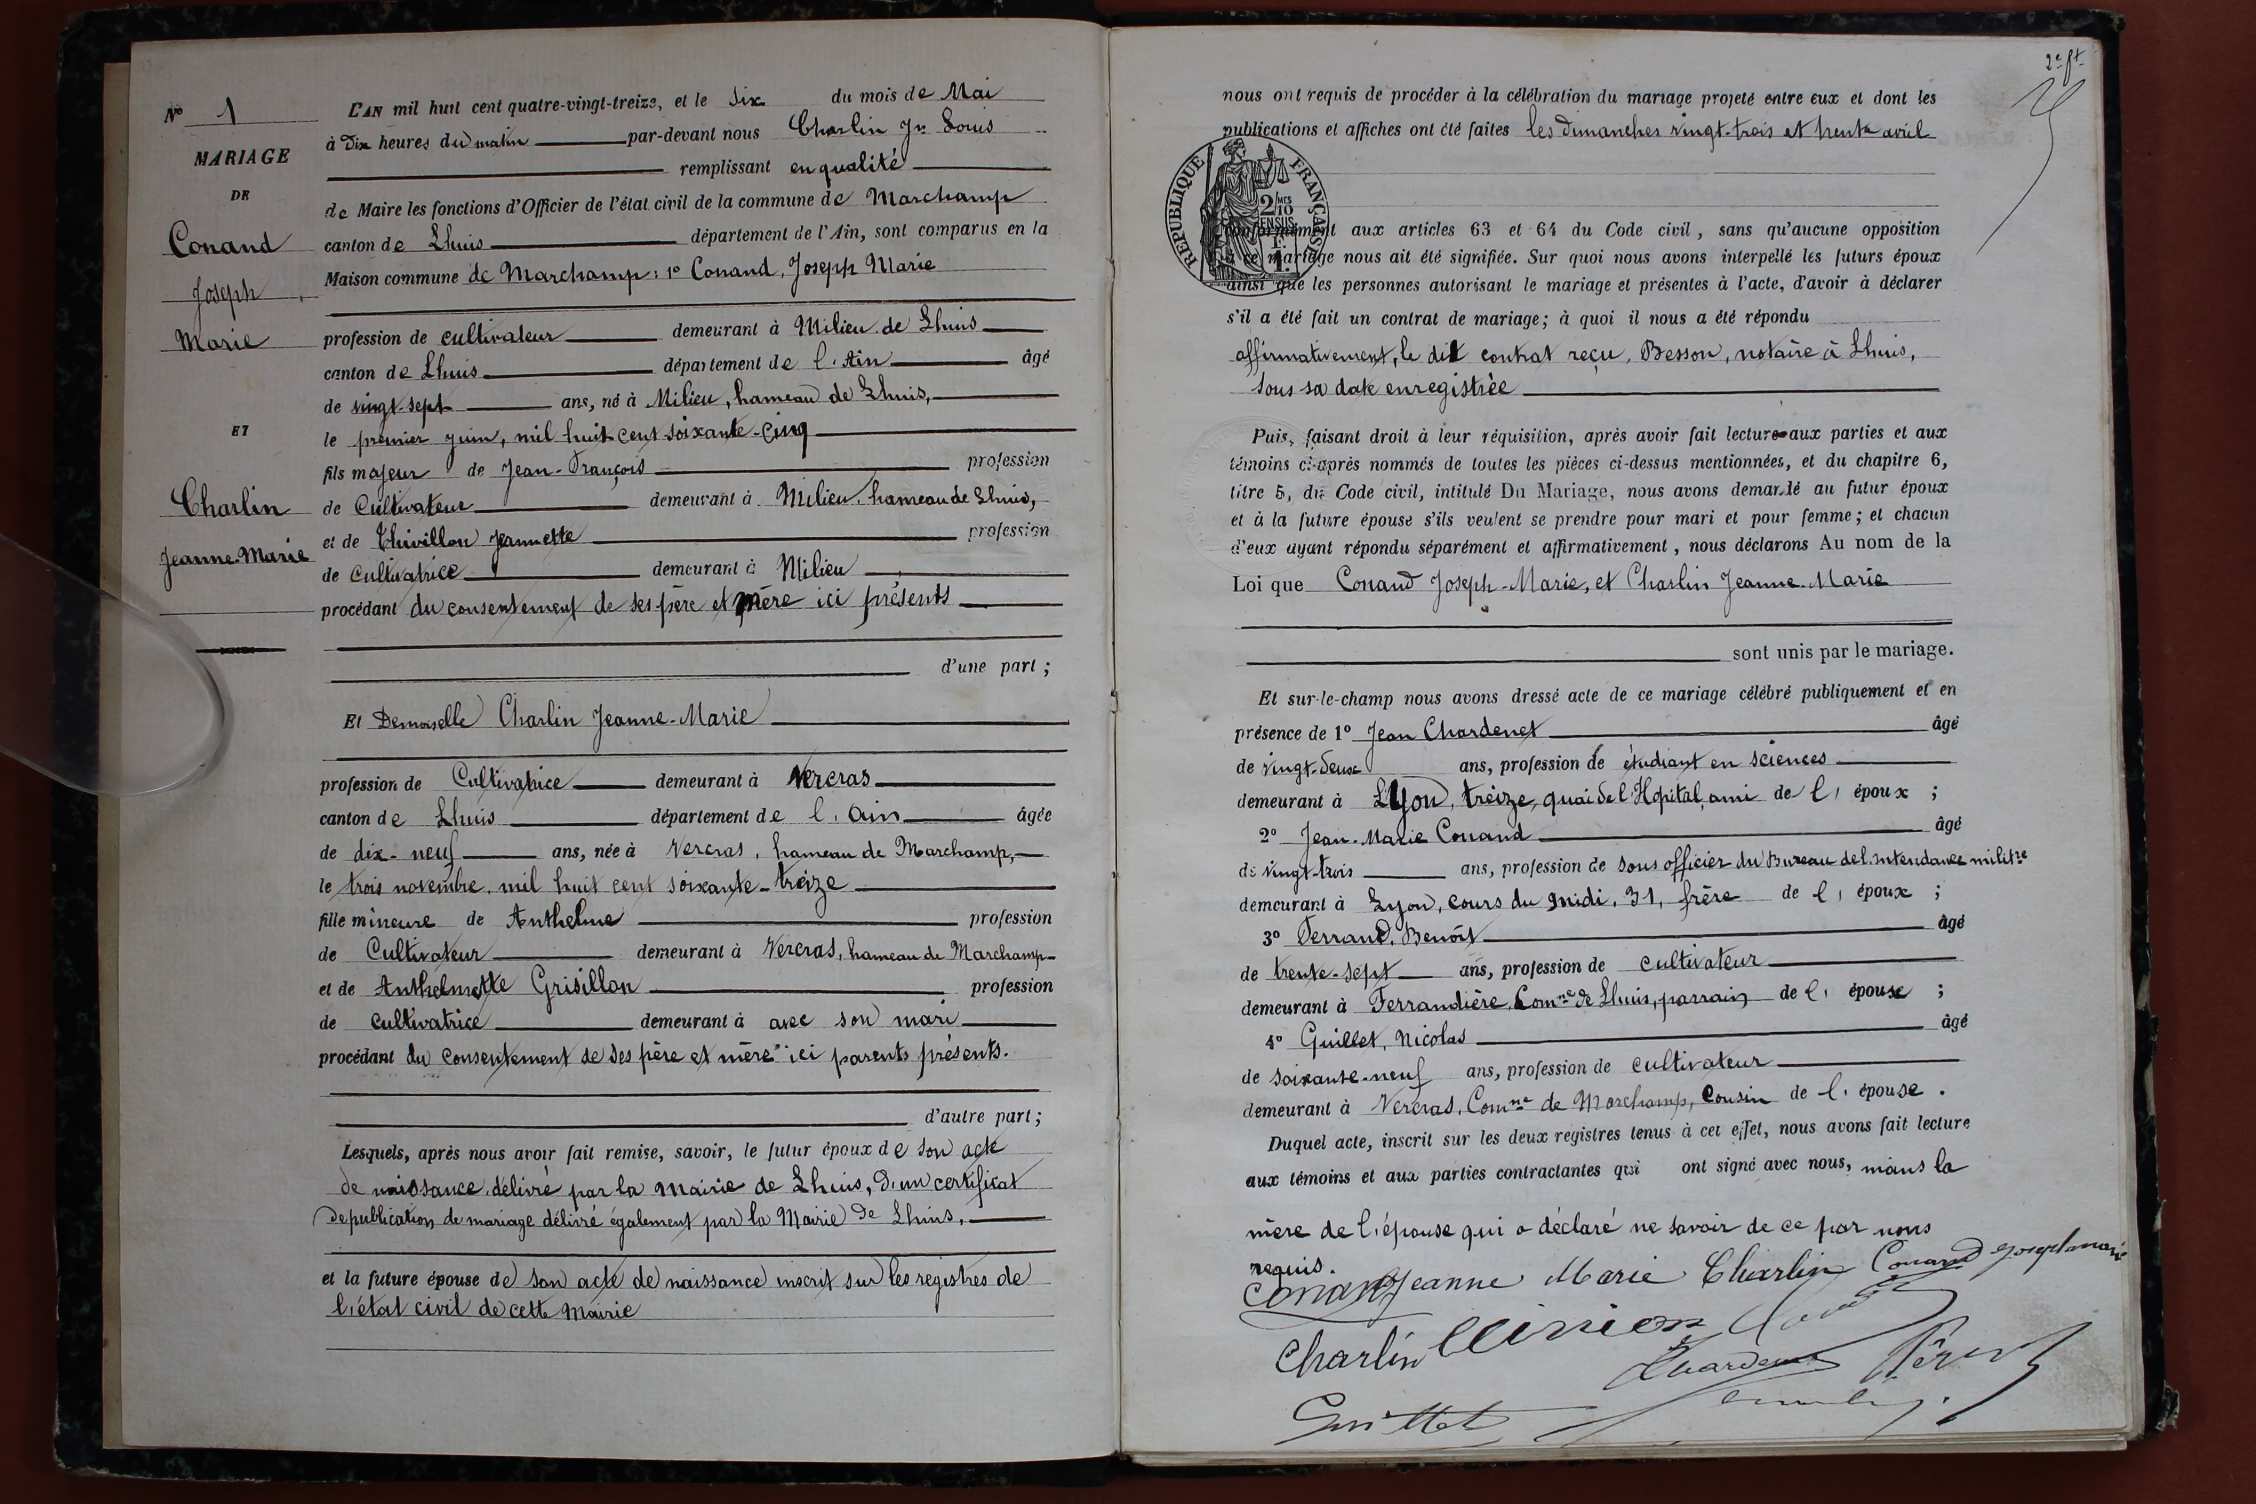 Nº 1
MARIAGE
DE
Conand
Joseph
Marie
ET
Charlin
Jeanne-Marie
L'AN mil huit cent quatre-vingt-treize, et le six du mois de Mai
à Dix heures du matin par-devant nous Charlin Jn Louis
remplissant en qualité
de Maire les fonctions d'Officier de l'état civil de la commune de Marchamp
canton de Lhuis département de l'Ain, sont comparus en la
Maison commune de Marchamp : 1º Conand, Joseph Marie
profession de cultivateur demeurant à Milieu de Lhuis
canton de Lhuis département de l'Ain âgé
de vingt-sept ans, né à Milieu, hameau de Lhuis,
le premier juin, mil huit cent soixante-cinq
fils majeur de Jean-François profession
de Cultivateur demeurant à Milieu, hameau de Lhuis,
et de Thivillon Jeannette profession
de cultivatrice demeurant à Milieu
procédant du consentement de ses père et mère ici présents
d'une part ;
Et Demoiselle Charlin Jeanne-Marie
profession de Cultivatrice demeurant à Vercras
canton de Lhuis département de l'Ain âgée
de dix-neuf ans, née à Vercras, hameau de Marchamp,
le trois novembre, mil huit cent soixante-treize
fille mineure de Anthelme profession
de Cultivateur demeurant à Vercras, hameau de Marchamp
et de Anthelmette Grisillon profession
de cultivatrice demeurant à avec son mari
procédant du consentement de ses père et mère ici parents présents.
d'autre part ;
Lesquels, après nous avoir fait remise, savoir, le futur époux de son acte
de naissance, délivré par la Mairie de Lhuis, d'un certificat
de publication de mariage délivré également par la Mairie de Lhuis,
et la future épouse de son acte de naissance inscrit sur les registres de
l'état civil de cette Mairie
2e ft.
nous ont requis de procéder à la célébration du mariage projeté entre eux et dont les
publications et affiches ont été faites les dimanches vingt-trois et trente avril
RÉPUBLIQUE FRANÇAISE
2/10 MES
EN SUS
conformément aux articles 63 et 64 du Code civil, sans qu'aucune opposition
à ce mariage nous ait été signifiée. Sur quoi nous avons interpellé les futurs époux
ainsi que les personnes autorisant le mariage et présentes à l'acte, d'avoir à déclarer
s'il a été fait un contrat de mariage ; à quoi il nous a été répondu
affirmativement, le dit contrat reçu, Besson, notaire à Lhuis,
sous sa date enregistrée
Puis, faisant droit à leur réquisition, après avoir fait lecture aux parties et aux
témoins ci-après nommés de toutes les pièces ci-dessus mentionnées, et du chapitre 6,
titre 5, du Code civil, intitulé Du Mariage, nous avons demandé au futur époux
et à la future épouse s'ils veulent se prendre pour mari et pour femme ; et chacun
d'eux ayant répondu séparément et affirmativement, nous déclarons Au nom de la
Loi que Conand Joseph-Marie, et Charlin Jeanne-Marie
sont unis par le mariage.
Et sur-le-champ nous avons dressé acte de ce mariage célébré publiquement et en
présence de 1º Jean Chardenet âgé
de vingt-deux ans, profession de étudiant en sciences
demeurant à Lyon, treize, quai de l'Hôpital, ami de l'époux ;
2º Jean-Marie Conand âgé
de vingt-trois ans, profession de sous officier du Bureau de l'intendance militre
demeurant à Lyon, cours du midi, 31, frère de l'époux ;
3º Ferrand, Benoît âgé
de trente-sept ans, profession de cultivateur
demeurant à Ferrandière, Comne de Lhuis, parrain de l'épouse ;
4º Guillet, Nicolas âgé
de soixante-neuf ans, profession de cultivateur
demeurant à Vercras, Comne de Marchamp, cousin de l'épouse.
Duquel acte, inscrit sur les deux registres tenus à cet effet, nous avons fait lecture
aux témoins et aux parties contractantes qui ont signé avec nous, moins la
mère de l'épouse qui a déclaré ne savoir de ce par nous
requis.
Conand Jeanne Marie Charlin Conand Joseph marie
Charlin
Guillet